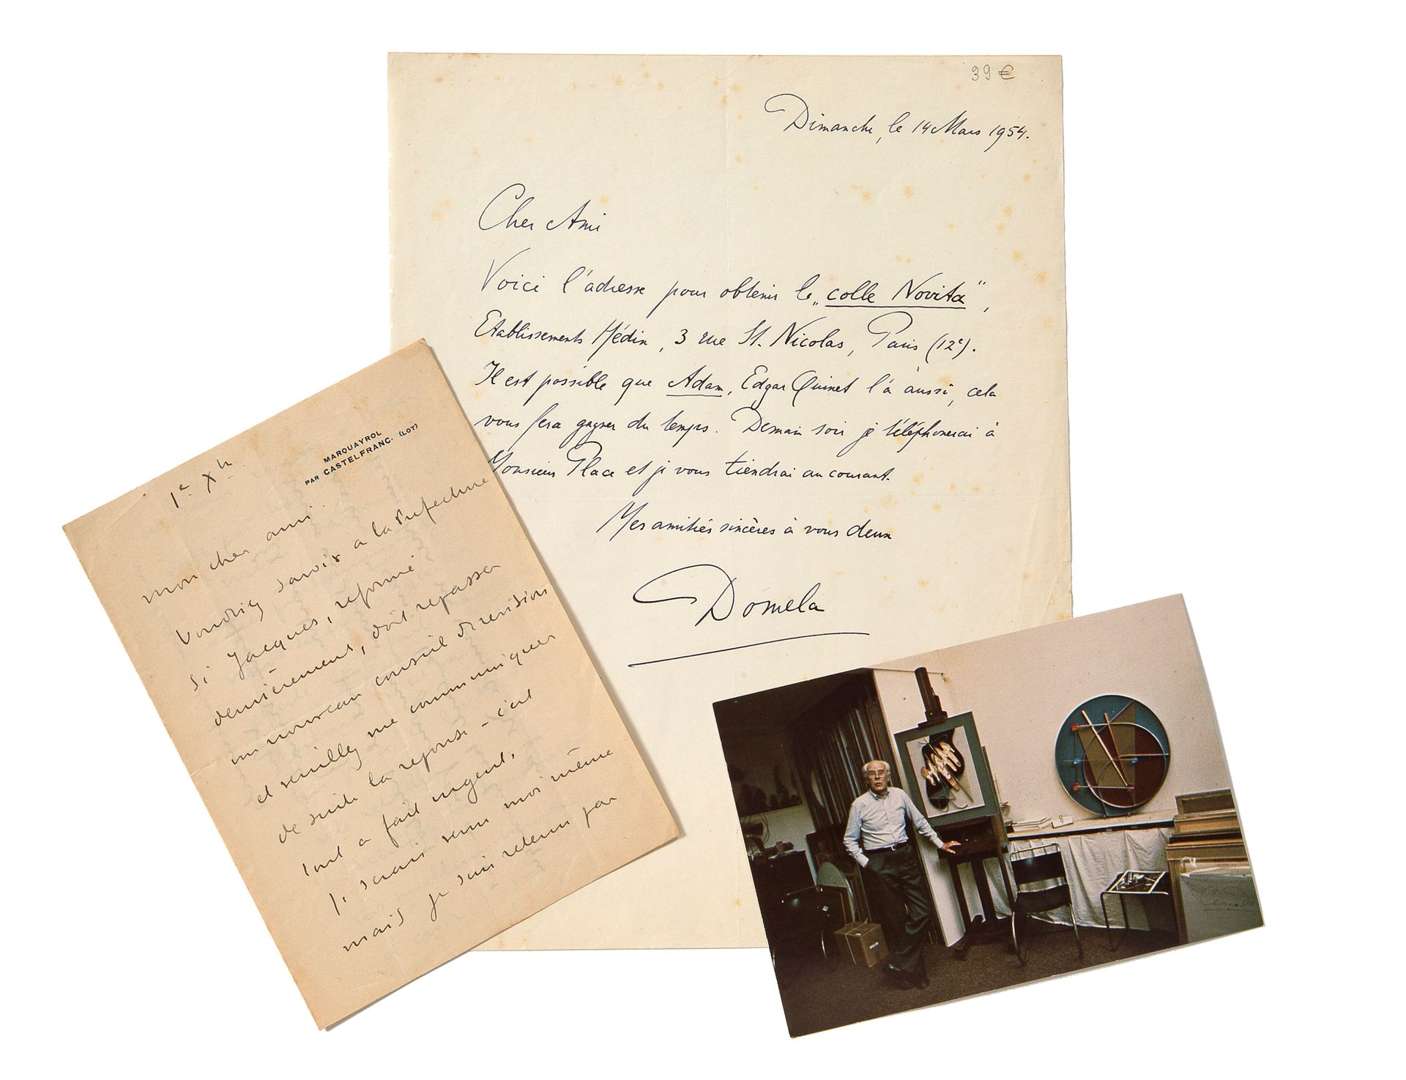 39 €
Dimanche, le 14 Mars 1954.
Cher Ami
Voici l'adresse pour obtenir le „colle Novita",
Etablissements Hédin, 3 rue St. Nicolas, Paris (12e).
Il est possible que Adam, Edgar Quinet l'a aussi, cela
vous fera gagner du temps. Demain soir je téléphonerai à
Monsieur Place et je vous tiendrai au courant.
Mes amitiés sincères à vous deux
Domela
MARQUAYROL
PAR CASTELFRANC. (LOT)
1er Xbre
mon cher ami.
Voudriez savoir a la Prefecture
si Jacques, reformé
dernièrement, doit repasser
un nouveau conseil de revision
et veuillez me communiquer
de suite la reponse - c'est
tout a fait urgent,
Je serais venu moi même
mais je suis retenu par